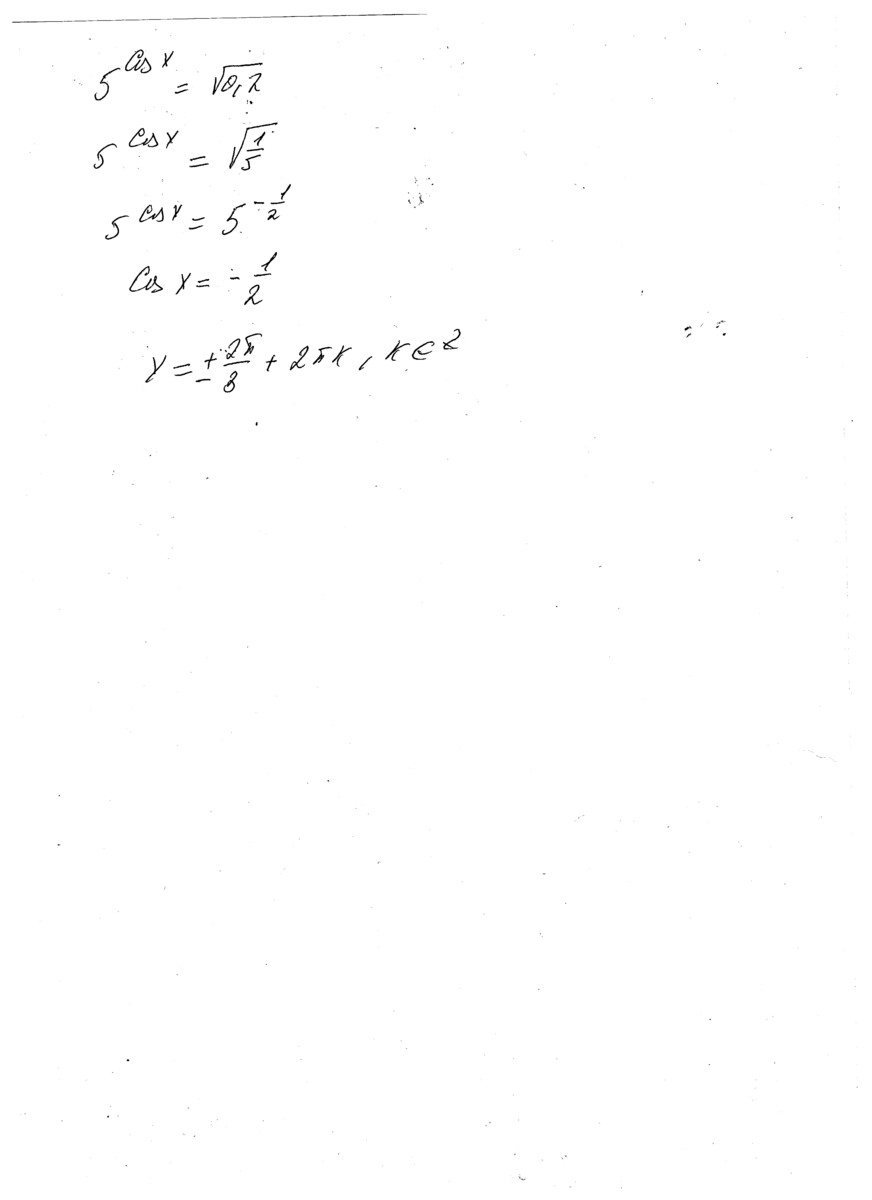 5^{cos x} = √0,2
5^{cos x} = √(1/5)
5^{cos x} = 5^{-1/2}
Cos x = -1/2
x = ±2π/3 + 2πk, k∈Z